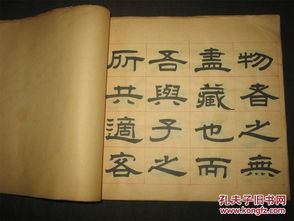 物者之無
盡藏也而
吾與子之
所共適客
孔夫子旧书网